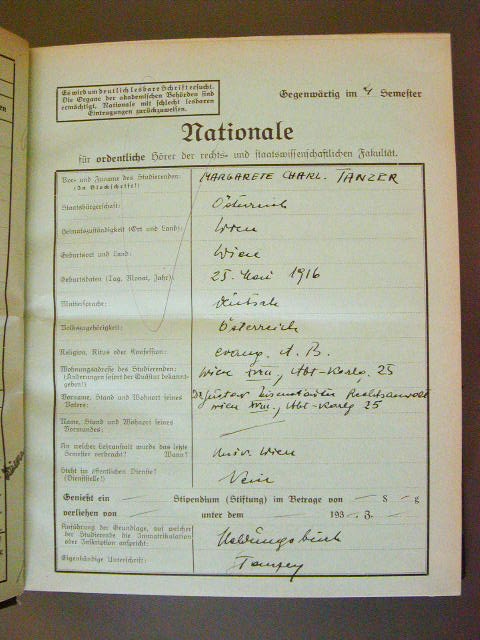 Es wird um deutlich lesbare Schrift ersucht.
Die Organe der akademischen Behörden sind
ermächtigt, Nationale mit schlecht lesbaren
Eintragungen zurückzuweisen.
Gegenwärtig im 4 Semester
Nationale
für ordentliche Hörer der rechts- und staatswissenschaftlichen Fakultät.
Vor- und Zuname des Studierenden: MARGARETE CHARL. TANZER
(In Blockschrift!)
Staatsbürgerschaft: Österreich
Heimatzuständigkeit (Ort und Land): Wien
Geburtsort und Land: Wien
Geburtsdaten (Tag, Monat, Jahr): 25. Mai 1916
Muttersprache: deutsch
Volkszugehörigkeit: Österreich
Religion, Ritus oder Konfession: evang. A. B.
Wohnungsadresse des Studierenden: Wien XVIII., Abt-Karlg. 25
(Änderungen sofort der Quästur bekannt-
geben!)
Vorname, Stand und Wohnort seines Dr Gustav Rechtsanwalt
Vaters: Wien XVIII., Abt-Karlg 25
Name, Stand und Wohnort seines
Vormundes:
An welcher Lehranstalt wurde das letzte Univ. Wien
Semester verbracht? Wann?
Steht im öffentlichen Dienste? Nein
(Dienststelle!)
Genießt ein — Stipendium (Stiftung) im Betrage von — S — g
verliehen von — unter dem — 193 Z.
Anführung der Grundlage, auf welcher Meldungsbuch
der Studierende die Immatrikulation
oder Inskription anspricht:
Eigenhändige Unterschrift: Tanzer